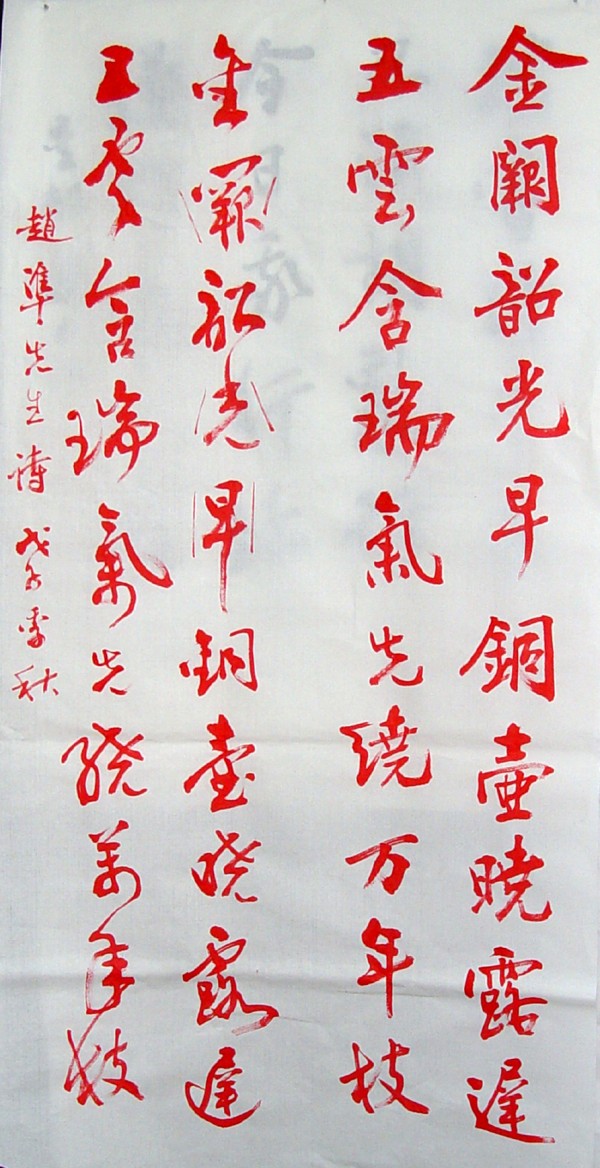 金闕韶光早銅壺曉露遲
五雲含瑞氣先繞万年枝
金闕韶光早銅壺曉露遲
五雲含瑞氣先繞萬年枝
趙準先生詩 戊子季秋